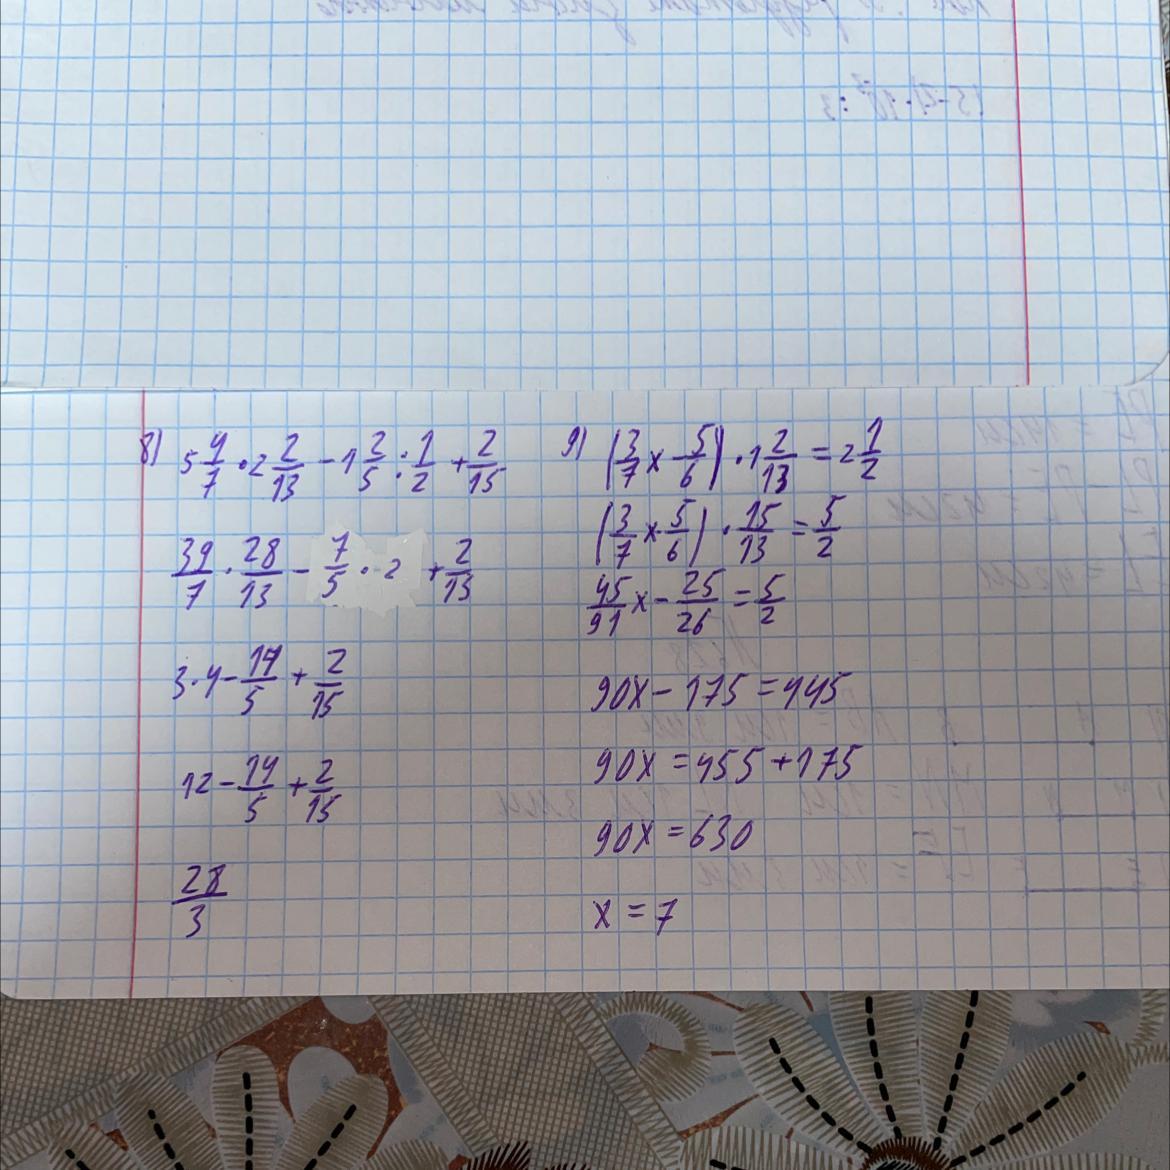 8) 5 4/7 · 2 2/13 - 1 2/5 : 1/2 + 2/15
39/7 · 28/13 - 7/5 · 2 + 2/15
3 · 4 - 14/5 + 2/15
12 - 14/5 + 2/15
28/3
9) (3/7 x - 5/6) · 1 2/13 = 2 1/2
(3/7 x - 5/6) · 15/13 = 5/2
45/91 x - 25/26 = 5/2
90x - 175 = 445
90x = 455 + 175
90x = 630
x = 7